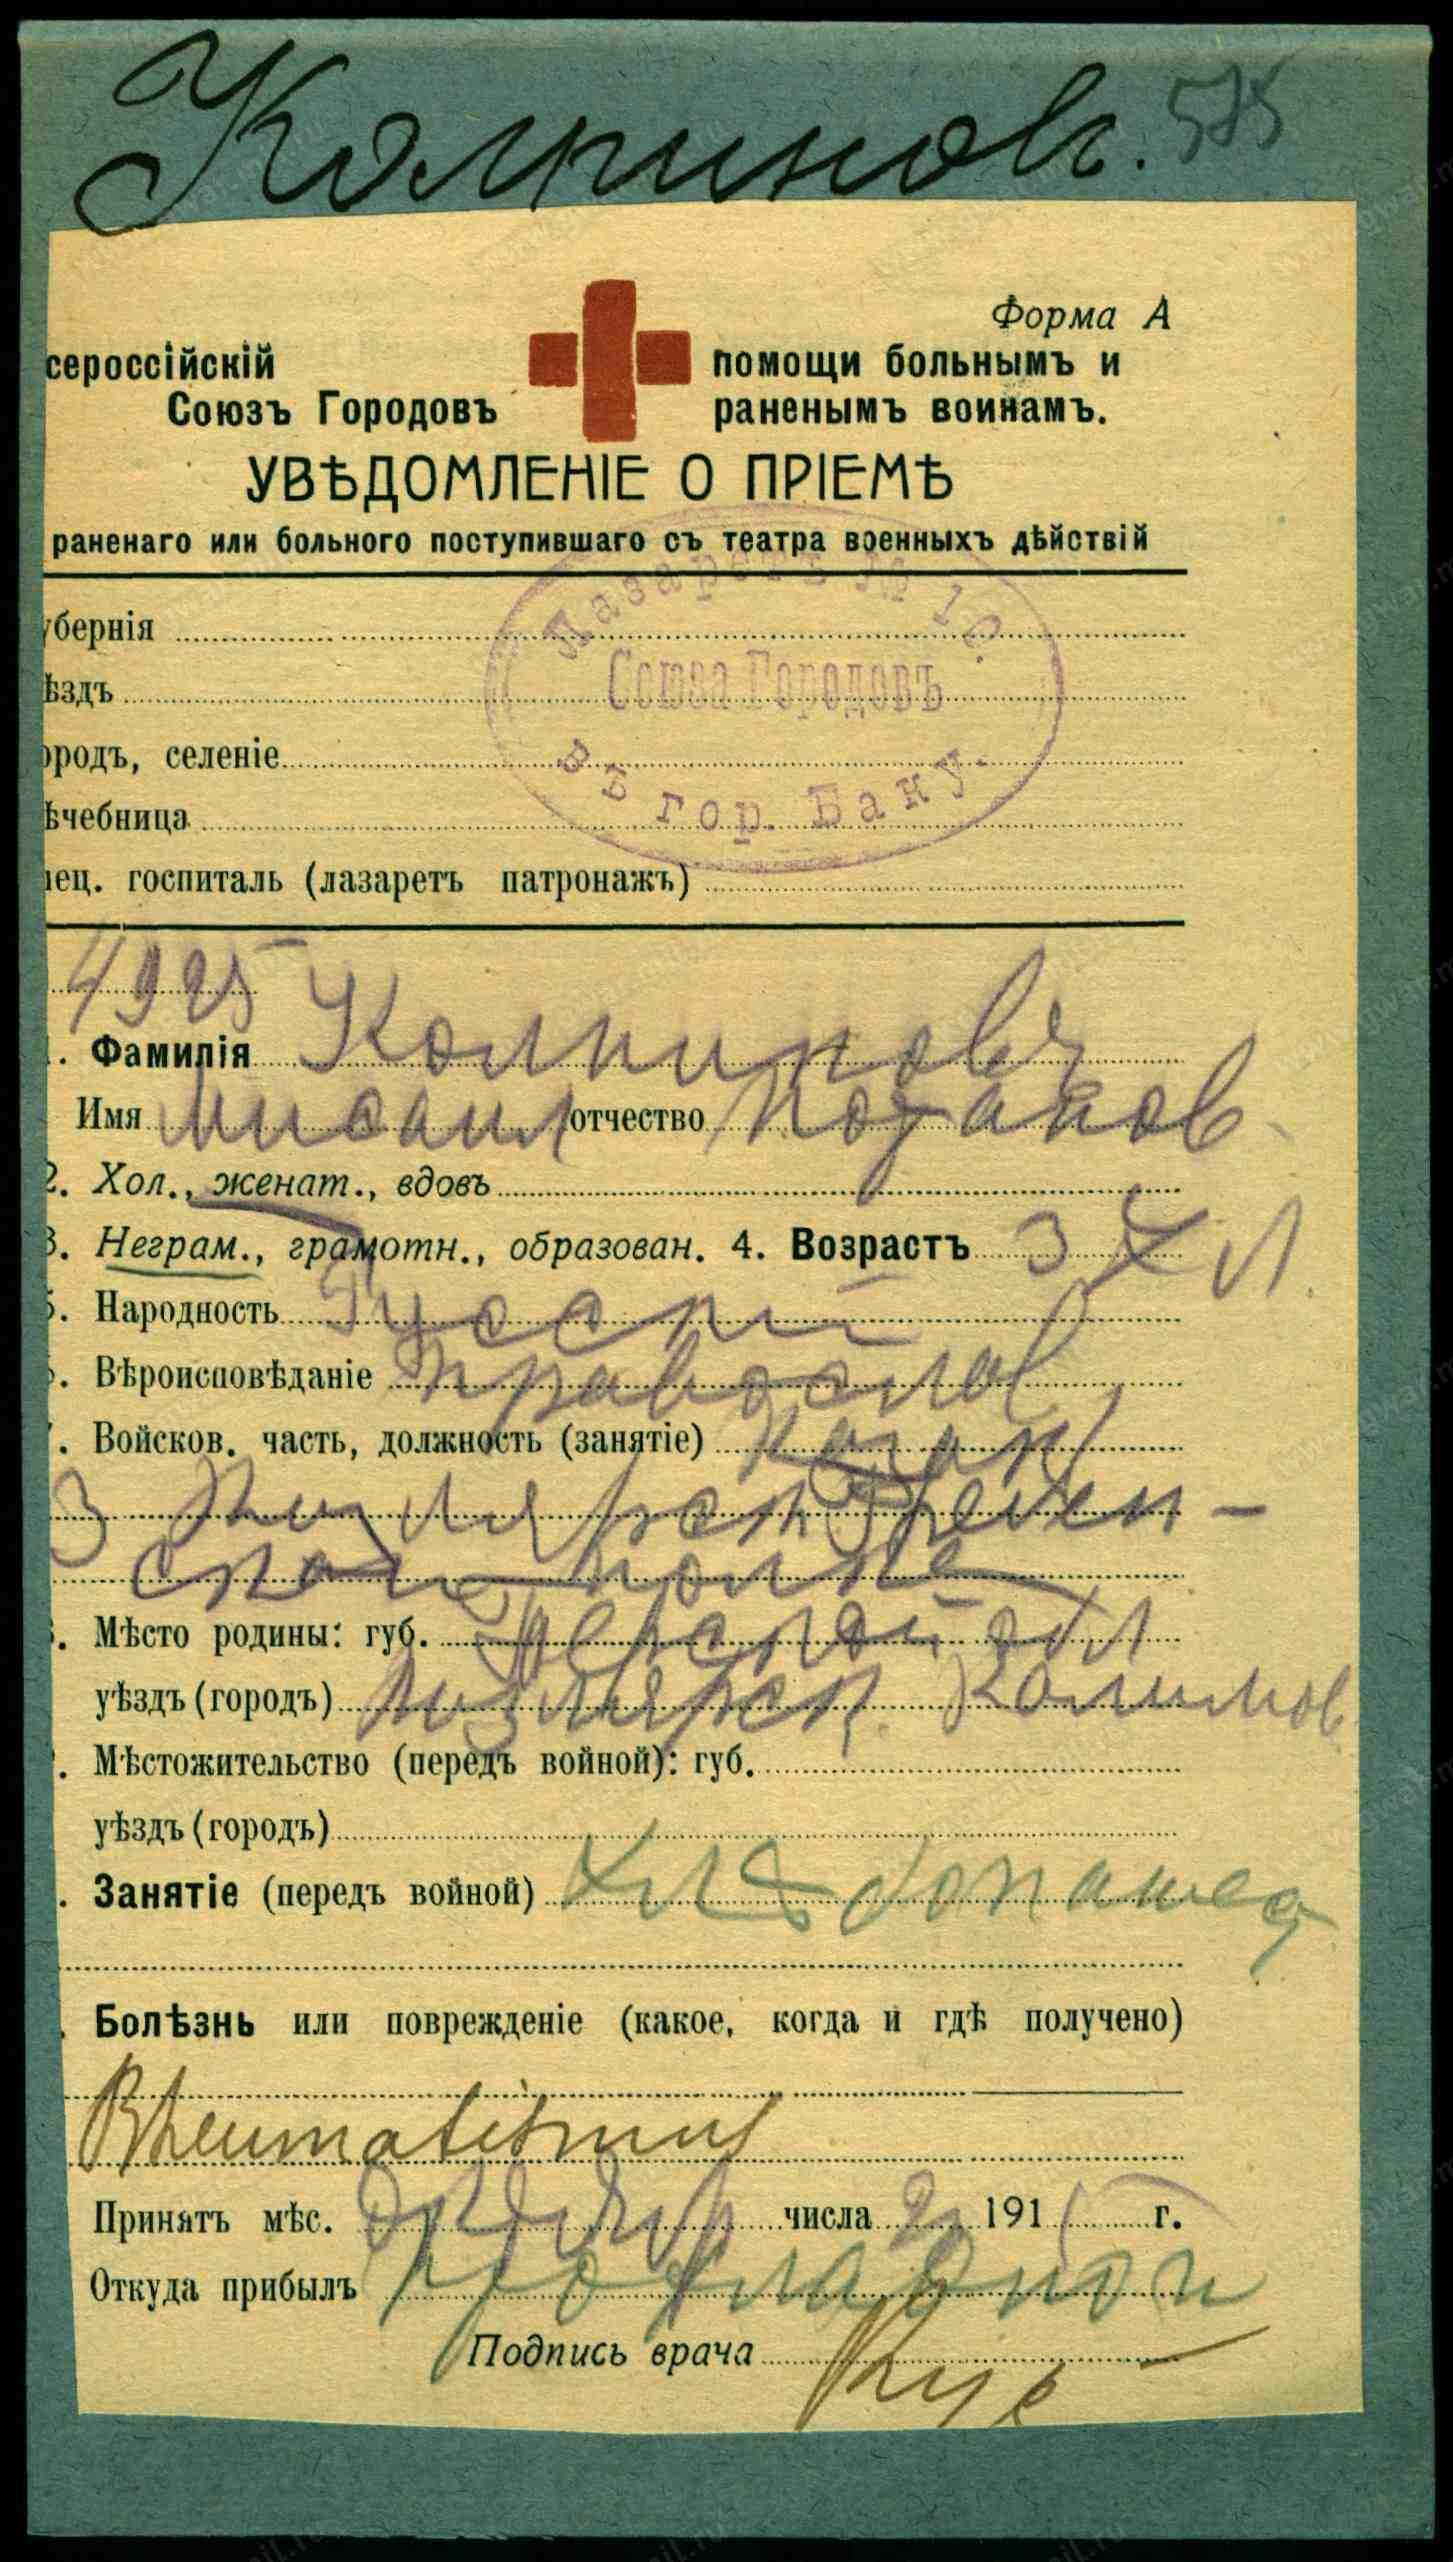 Колпиновъ. 575
Форма А
сероссійскій помощи больнымъ и
Союзъ Городовъ раненымъ воинамъ.
УВѢДОМЛЕНІЕ О ПРІЕМѢ
раненаго или больного поступившаго съ театра военныхъ дѣйствій
Лазаретъ № 10.
Союза Городовъ
въ гор. Баку.
убернія
ѣздъ
ородъ, селеніе
ѣчебница
пец. госпиталь (лазаретъ патронажъ)
4925
. Фамилія Колпиновъ
Имя Михаил отчество Потапов
2. Хол., женат., вдовъ
3. Неграм., грамотн., образован. 4. Возрастъ 34 л.
5. Народность Русскій
6. Вѣроисповѣданіе православ
7. Войсков. часть, должность (занятіе) Казак
3 Кизляро Гребен-
ского полка
8. Мѣсто родины: губ. Терской обл
уѣздъ (городъ) Кизлярск.
. Мѣстожительство (передъ войной): губ.
уѣздъ (городъ)
. Занятіе (передъ войной) хлѣбопашец
. Болѣзнь или поврежденіе (какое, когда и гдѣ получено)
Rheumatismus
Принятъ мѣс. числа 2 1915 г.
Откуда прибылъ
Подпись врача